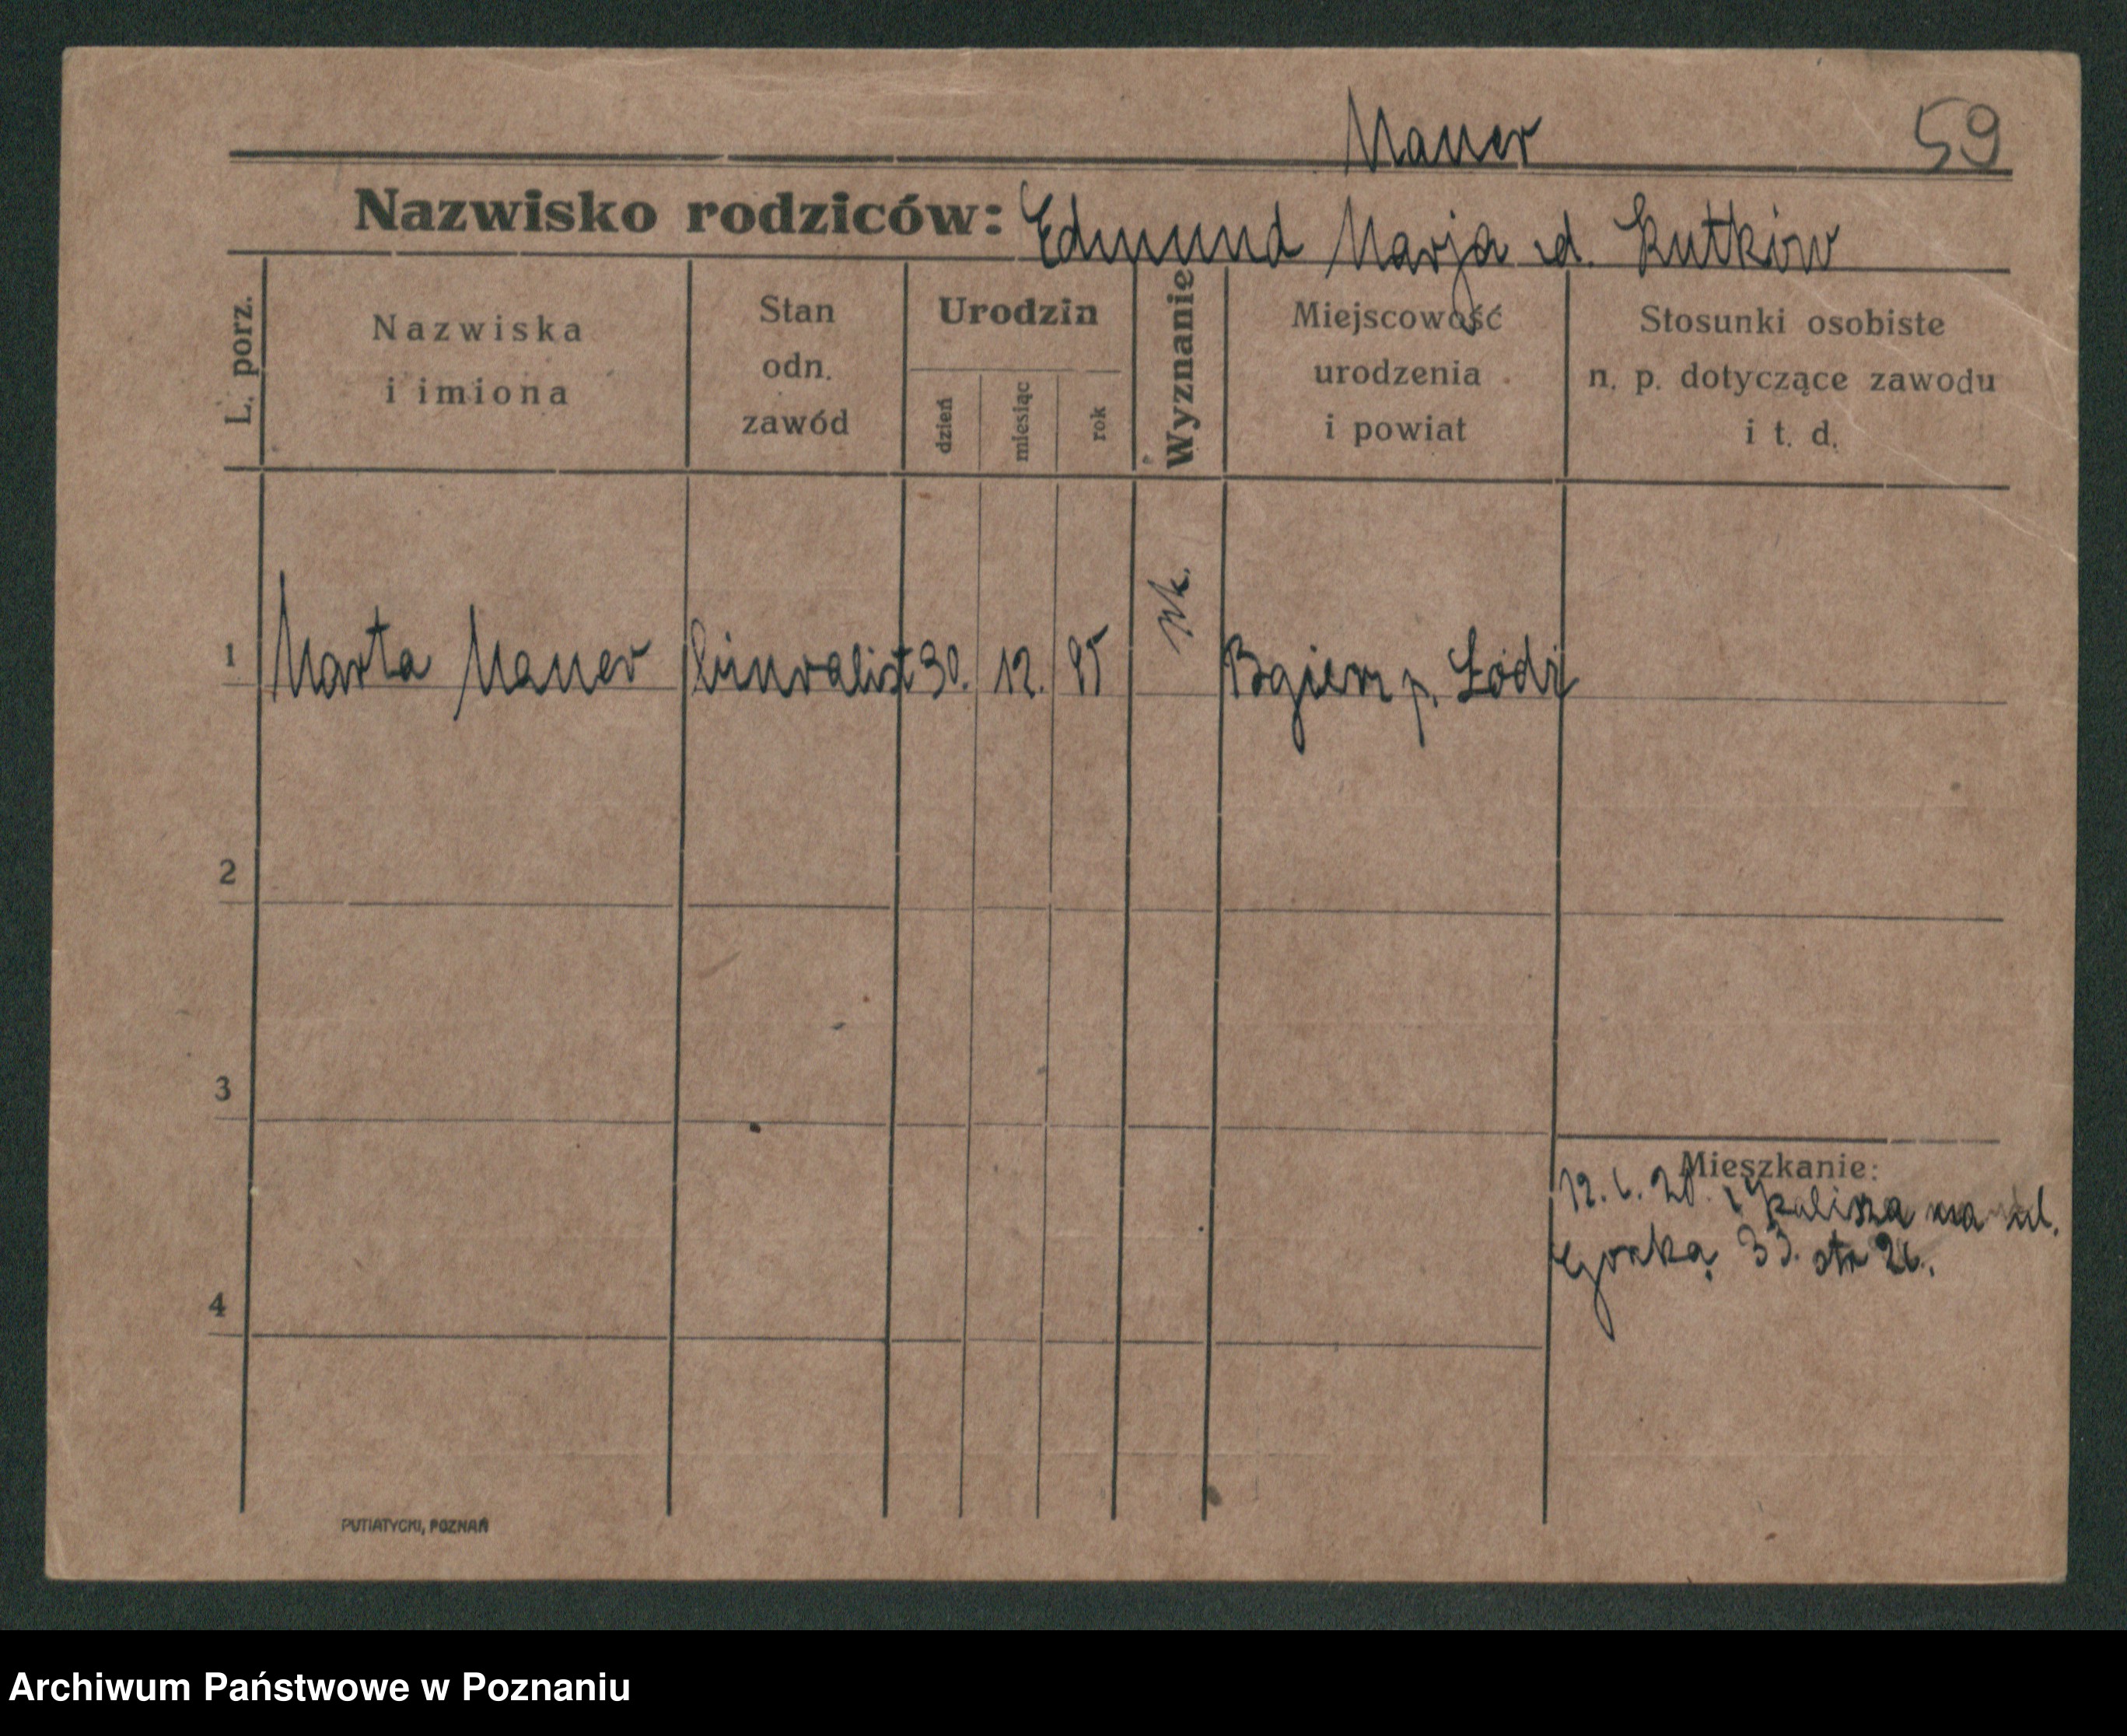 Mauer
59
Nazwisko rodziców: Edmund Marja d. Rutków
L. porz.
Nazwiska
i imiona
Stan
odn.
zawód
Urodzin
dzień
miesiąc
rok
Wyznanie
Miejscowość
urodzenia
i powiat
Stosunki osobiste
n. p. dotyczące zawodu
i t. d.
1 Marta Mauer 30. 12. 95 p. Łódź
2
3
4
Mieszkanie:
z Kalisza na ul.
33. str 26.
PUTIATYCKI, POZNAŃ
Archiwum Państwowe w Poznaniu